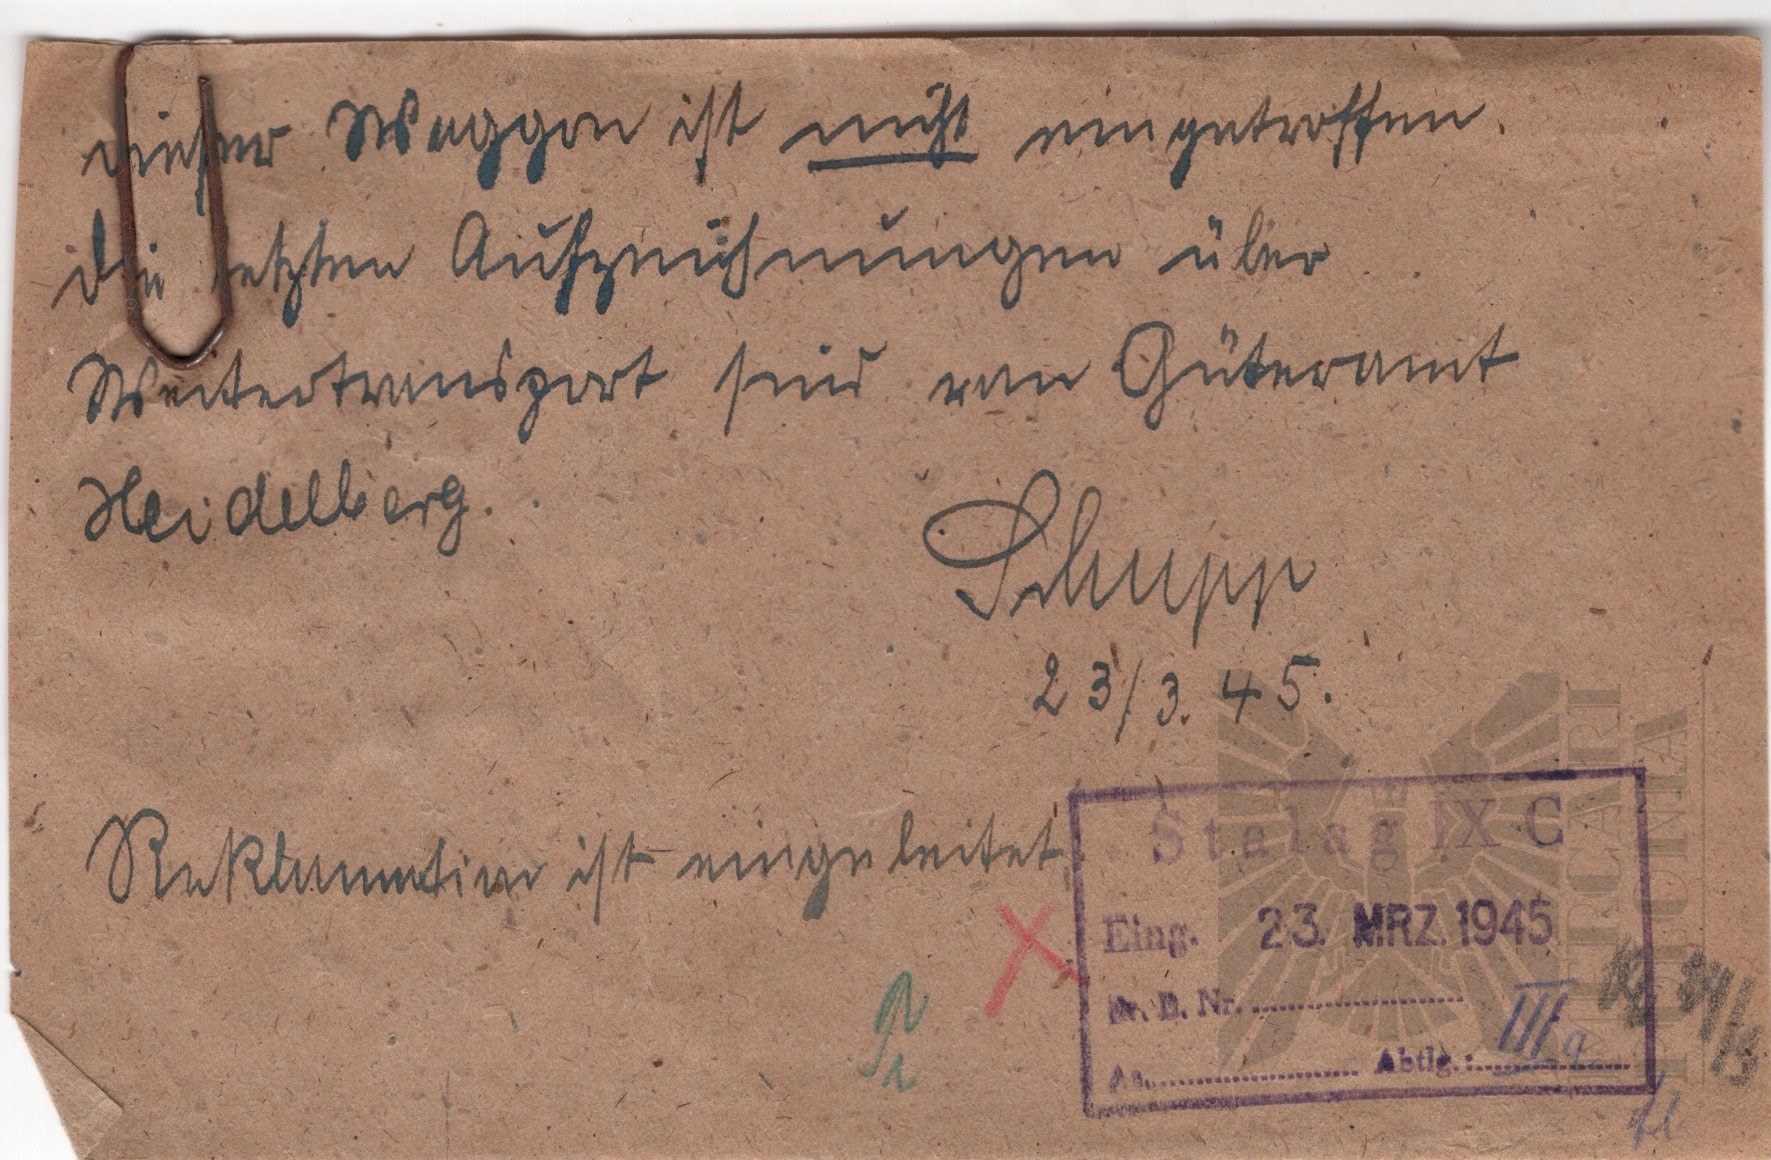 dieser Waggon ist nicht eingetroffen.
Die letzten Aufzeichnungen über
Weitertransport sind von Güteramt
Heidelberg.
Schupp
23/3. 45.
Reklamation ist eingeleitet.
Stalag IX C
Eing. 23. MRZ. 1945
Br. B. Nr.
An Abtlg.: IIIa
MERCARI
POLONIA